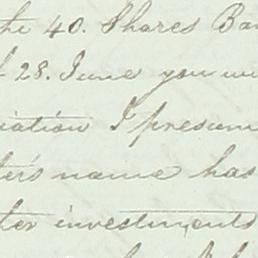 the 40. Shares Ba
28. June you w
iation I presum
ter's name has
ter investments